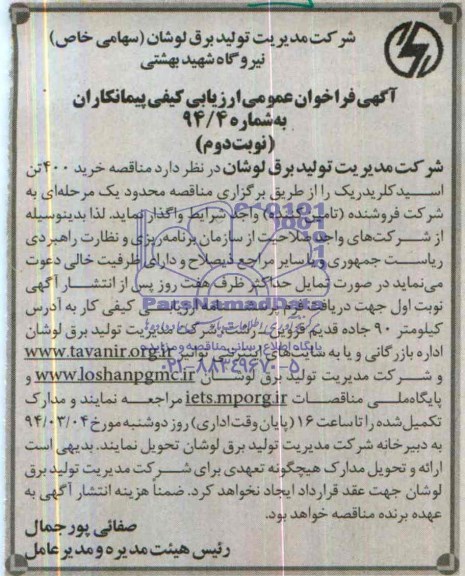 شرکت مدیریت تولید برق لوشان (سهامی خاص)
نیروگاه شهید بهشتی
آگهی فراخوان عمومی ارزیابی کیفی پیمانکاران
به شماره ۹۴/۴
(نوبت دوم)
شرکت مدیریت تولید برق لوشان در نظر دارد مناقصه خرید ۴۰۰ تن
اسید کلریدریک را از طریق برگزاری مناقصه محدود یک مرحله‌ای به
شرکت فروشنده (تامین کننده) واجد شرایط واگذار نماید. لذا بدینوسیله
از شرکت‌های واجد صلاحیت از سازمان برنامه‌ریزی و نظارت راهبردی
ریاست جمهوری و یا سایر مراجع ذیصلاح و دارای ظرفیت خالی دعوت
می‌نماید در صورت تمایل حداکثر ظرف هفت روز پس از انتشار آگهی
نوبت اول جهت دریافت ارزیابی کیفی کار به آدرس
کیلومتر ۹۰ جاده قدیم قزوین ـ رشت، شرکت مدیریت تولید برق لوشان
اداره بازرگانی و یا به سایت‌های اینترنتی توانیر www.tavanir.org.ir
و شرکت مدیریت تولید برق لوشان www.loshanpgmc.ir و
پایگاه ملی مناقصات iets.mporg.ir مراجعه نمایند و مدارک
تکمیل شده را تا ساعت ۱۶ (پایان وقت اداری) روز دوشنبه مورخ ۹۴/۰۳/۰۴
به دبیرخانه شرکت مدیریت تولید برق لوشان تحویل نمایند. بدیهی است
ارائه و تحویل مدارک هیچگونه تعهدی برای شرکت مدیریت تولید برق
لوشان جهت عقد قرارداد ایجاد نخواهد کرد. ضمناً هزینه انتشار آگهی به
عهده برنده مناقصه خواهد بود.
صفائی پور جمال
رئیس هیئت مدیره و مدیر عامل
ParsNamadData
پایگاه اطلاع رسانی مناقصه و مزایده
۰۲۱-۸۸۳۴۹۶۷۰-۵